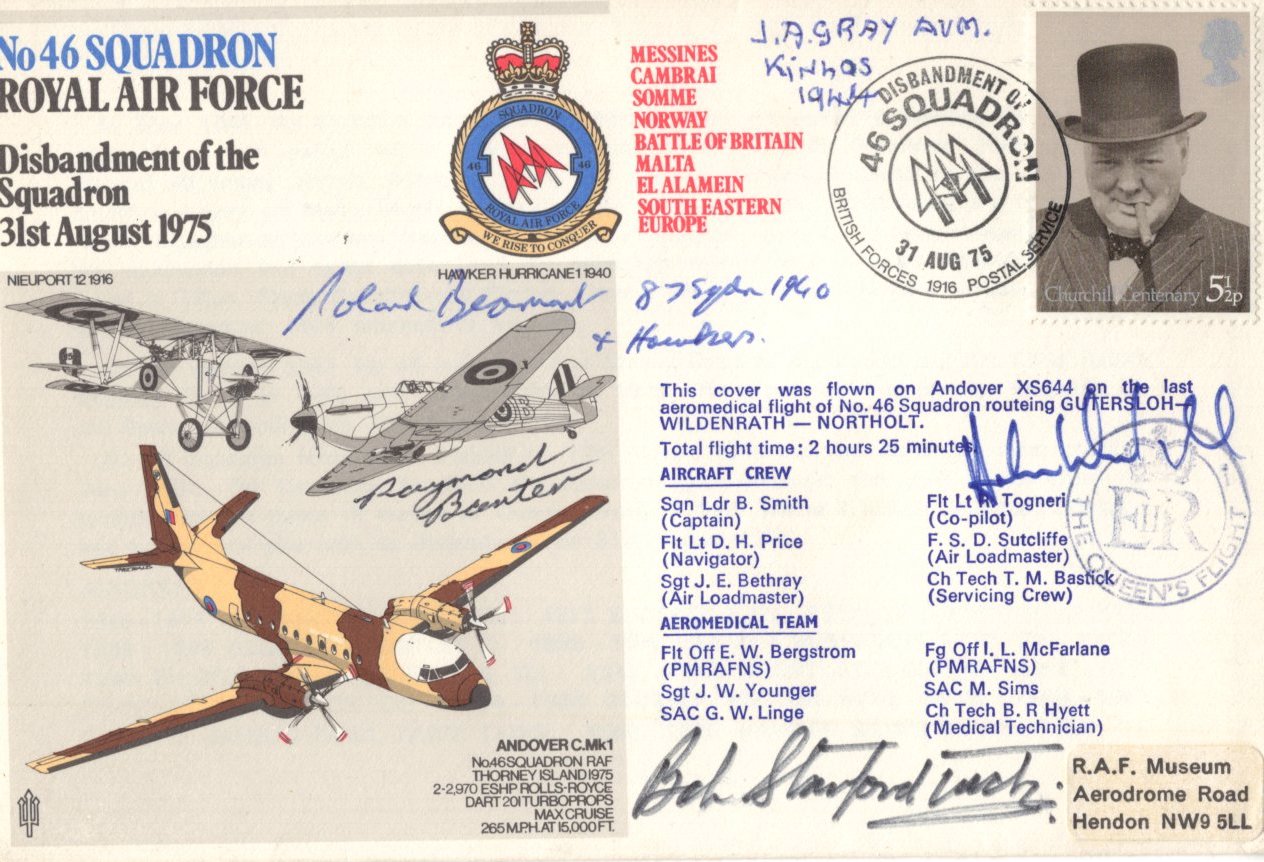 No 46 SQUADRON
ROYAL AIR FORCE
Disbandment of the
Squadron
31st August 1975
SQUADRON
46 46
ROYAL AIR FORCE
WE RISE TO CONQUER
MESSINES
CAMBRAI
SOMME
NORWAY
BATTLE OF BRITAIN
MALTA
EL ALAMEIN
SOUTH EASTERN
EUROPE
J.A.GRAY AVM.
Kinloss
1944
DISBANDMENT OF
46 SQUADRON
31 AUG 75
BRITISH FORCES 1916 POSTAL SERVICE
Churchill Centenary 5½p
NIEUPORT 12 1916
HAWKER HURRICANE 1 1940
Roland Beamont
87 Sqdn 1940
+ Hawkers.
B
Raymond
Baxter
This cover was flown on Andover XS644 on the last
aeromedical flight of No. 46 Squadron routeing GUTERSLOH—
WILDENRATH — NORTHOLT.
Total flight time: 2 hours 25 minutes.
AIRCRAFT CREW
Sqn Ldr B. Smith
(Captain)
Flt Lt D. H. Price
(Navigator)
Sgt J. E. Bethray
(Air Loadmaster)
Flt Lt R. Togneri
(Co-pilot)
F. S. D. Sutcliffe
(Air Loadmaster)
Ch Tech T. M. Bastick
(Servicing Crew)
EIIR
THE QUEEN'S FLIGHT
AEROMEDICAL TEAM
Flt Off E. W. Bergstrom
(PMRAFNS)
Sgt J. W. Younger
SAC G. W. Linge
Fg Off I. L. McFarlane
(PMRAFNS)
SAC M. Sims
Ch Tech B. R Hyett
(Medical Technician)
ANDOVER C.Mk1
No.46 SQUADRON RAF
THORNEY ISLAND 1975
2-2,970 ESHP ROLLS-ROYCE
DART 201 TURBOPROPS
MAX CRUISE
265 M.P.H. AT 15,000 FT.
Bob Stanford Tuck.
R.A.F. Museum
Aerodrome Road
Hendon NW9 5LL